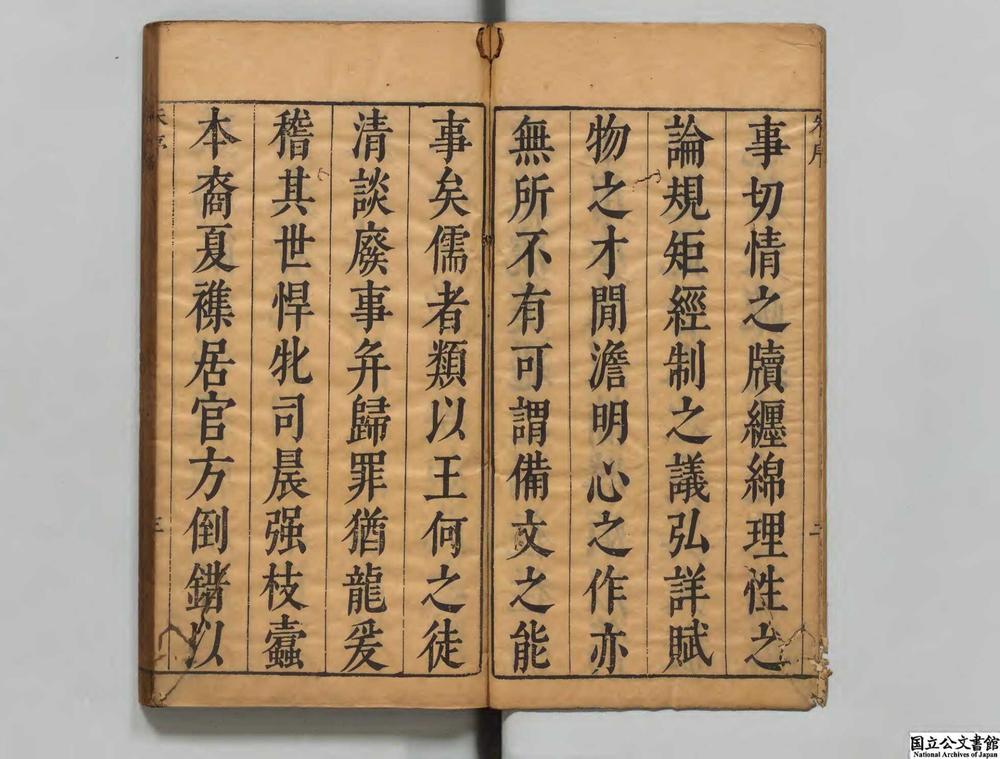 事切情之牘纏綿理性之
論規矩經制之議弘詳賦
物之才閒澹明心之作亦
無所不有可謂備文之能
事矣儒者類以王何之徒
清談廢事弁歸罪猶龍爰
稽其世悍牝司晨强枝蠹
本裔夏襍居官方倒錯以
国立公文書館
National Archives of Japan